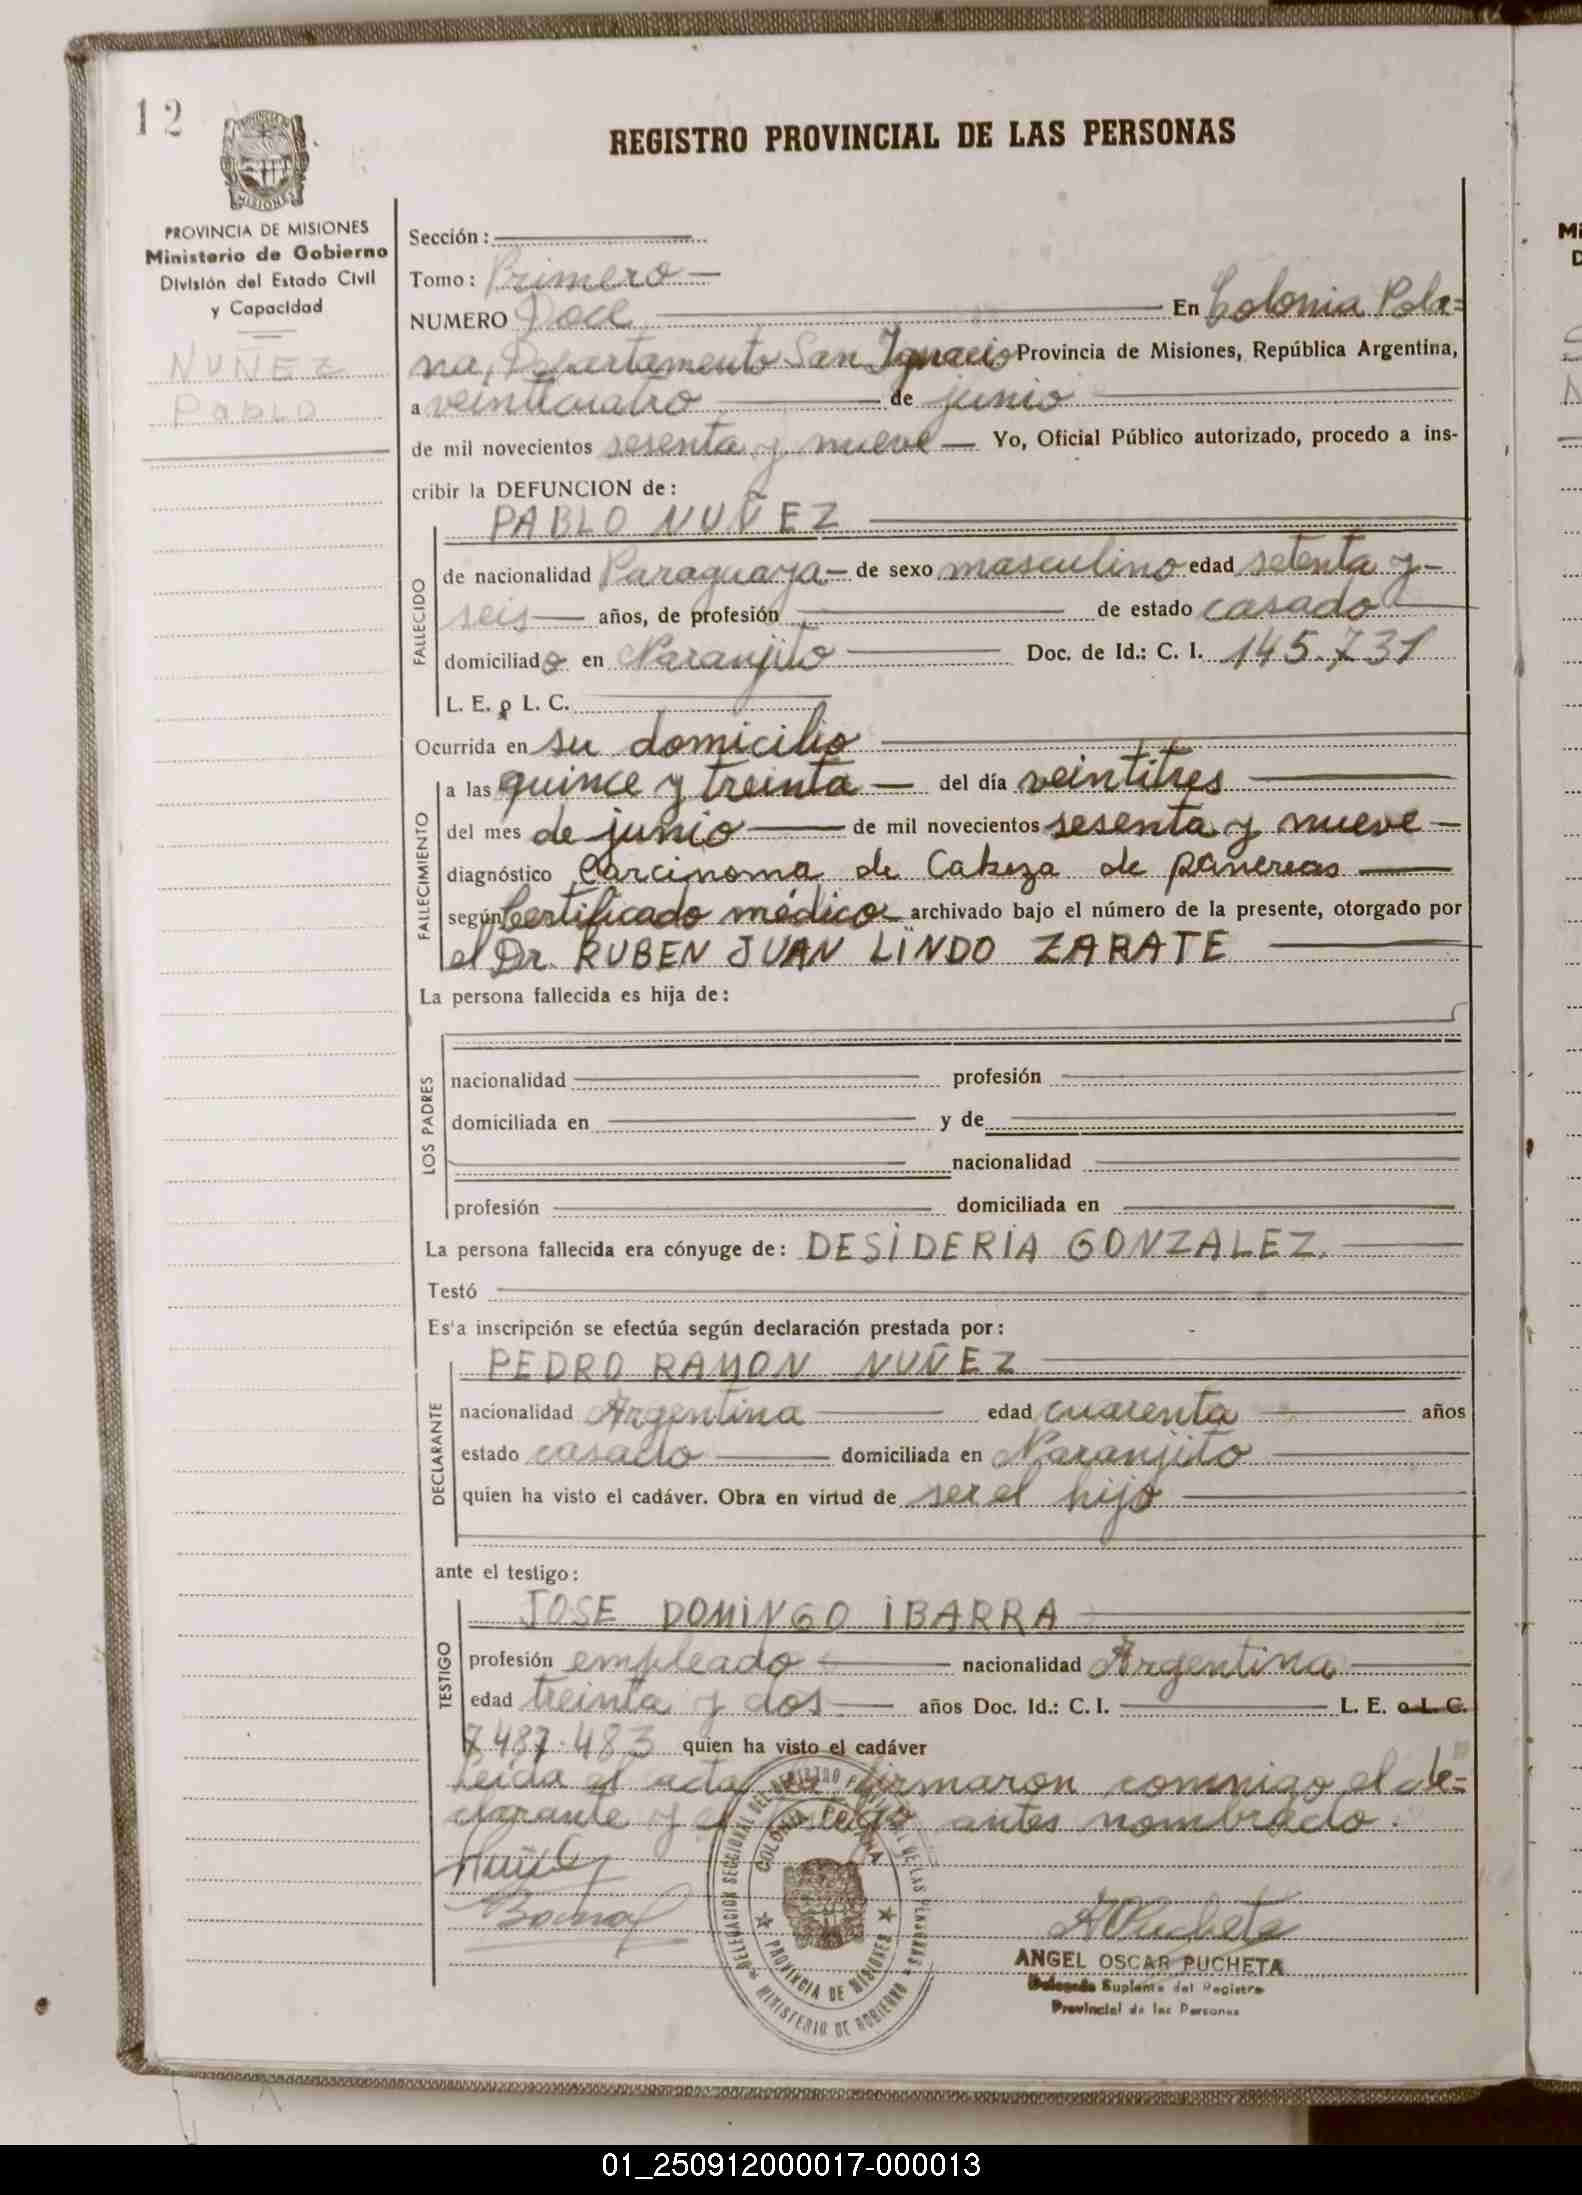 12
PROVINCIA DE MISIONES
Ministerio de Gobierno
División del Estado Civil
y Capacidad
NUÑEZ
PABLO
REGISTRO PROVINCIAL DE LAS PERSONAS
Sección:
Tomo: Primero
NUMERO Doce En Colonia Pola=
na, Departamento San Ignacio Provincia de Misiones, República Argentina,
a veinticuatro de junio
de mil novecientos sesenta y nueve Yo, Oficial Público autorizado, procedo a ins-
cribir la DEFUNCION de:
PABLO NUÑEZ
FALLECIDO
de nacionalidad Paraguaya de sexo masculino edad setenta y
seis años, de profesión de estado casado
domiciliado en Naranjito Doc. de Id.: C. I. 145.731
L. E. o L. C.
Ocurrida en su domicilio
FALLECIMIENTO
a las quince y treinta del día veintitres
del mes de junio de mil novecientos sesenta y nueve
diagnóstico Carcinoma de Cabeza de páncreas
según Certificado médico archivado bajo el número de la presente, otorgado por
el Dr. RUBEN JUAN LINDO ZARATE
La persona fallecida es hija de:
LOS PADRES
nacionalidad profesión
domiciliada en y de
nacionalidad
profesión domiciliada en
La persona fallecida era cónyuge de: DESIDERIA GONZALEZ.
Testó
Es'a inscripción se efectúa según declaración prestada por:
PEDRO RAMON NUÑEZ
DECLARANTE
nacionalidad Argentina edad cuarenta años
estado casado domiciliada en Naranjito
quien ha visto el cadáver. Obra en virtud de ser el hijo
ante el testigo:
JOSE DOMINGO IBARRA
TESTIGO
profesión empleado nacionalidad Argentina
edad treinta y dos años Doc. Id.: C. I. L. E. o L. C.
7487.483 quien ha visto el cadáver
Leida el acta la firmaron conmigo el de=
clarante y el testigo antes nombrado.
DELEGACION SECCIONAL DEL REGISTRO PROVINCIAL DE LAS PERSONAS
COLONIA POLANA
PROVINCIA DE MISIONES
MINISTERIO DE GOBIERNO
ANGEL OSCAR PUCHETA
Delegado Suplente del Registro
Provincial de las Personas
01_250912000017-000013